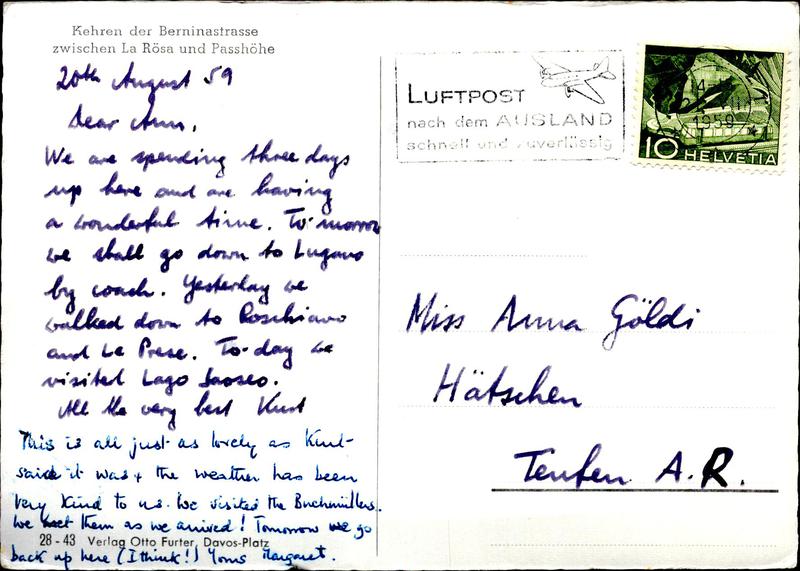 Kehren der Berninastrasse
zwischen La Rösa und Passhöhe
20th August 59
Dear Ann,
We are spending three days
up here and are having
a wonderful time. To-morrow
we shall go down to Lugano
by coach. Yesterday we
walked down to Poschiavo
and Le Prese. To-day we
visited Lago Saoseo.
All the very best Kurt
This is all just as lovely as Kurt
said it was + the weather has been
very kind to us. We visited the Buchmüllers.
We met them as we arrived! Tomorrow we go
back up here (I think!) Yours Margaret.
28 - 43 Verlag Otto Furter, Davos-Platz
LUFTPOST
nach dem AUSLAND
schnell und zuverlässig
1959
10 HELVETIA
Miss Anna Göldi
Hätschen
Teufen A.R.